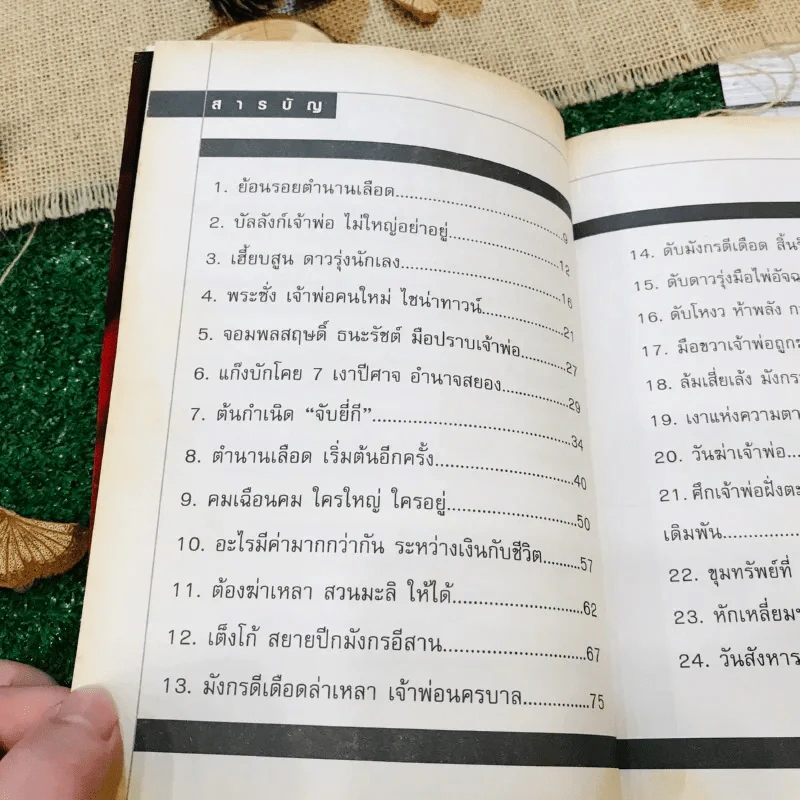 สารบัญ
1. ย้อนรอยตำนานเลือด..............................9
2. บัลลังก์เจ้าพ่อ ไม่ใหญ่อย่าอยู่....................12
3. เฮี้ยบสูน ดาวรุ่งนักเลง............................16
4. พระซั่ง เจ้าพ่อคนใหม่ ไชน่าทาวน์...............21
5. จอมพลสฤษดิ์ ธนะรัชต์ มือปราบเจ้าพ่อ..........27
6. แก๊งบักโคย 7 เงาปีศาจ อำนาจสยอง............29
7. ต้นกำเนิด “จับยี่กี”................................34
8. ตำนานเลือด เริ่มต้นอีกครั้ง......................40
9. คมเฉือนคม ใครใหญ่ ใครอยู่....................50
10. อะไรมีค่ามากกว่ากัน ระหว่างเงินกับชีวิต..........57
11. ต้องฆ่าเหลา สวนมะลิ ให้ได้....................62
12. เต็งโก้ สยายปีกมังกรอีสาน......................67
13. มังกรดีเดือดล่าเหลา เจ้าพ่อนครบาล...............75
14. ดับมังกรดีเดือด
15. ดับดาวรุ่งมือไพ่
16. ดับโหงว ห้าพลัง
17. มือขวาเจ้าพ่อถูก
18. ล้มเสี่ยเล้ง มังกร
19. เงาแห่งความตา
20. วันฆ่าเจ้าพ่อ...
21. ศึกเจ้าพ่อฝั่งตะ
เดิมพัน................
22. ขุมทรัพย์ที่
23. หักเหลี่ยม
24. วันสังหาร